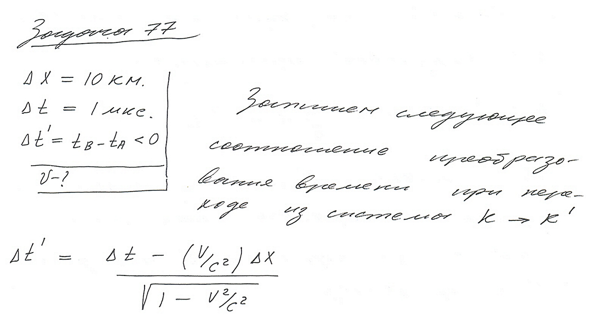 Задача 77
Δx = 10 км.
Δt = 1 мкс.
Δt' = t_B - t_A < 0
v-?
Запишем следующее
соотношение преобразо-
вания времени при пере-
ходе из системы K → K'
Δt' = (Δt - (V/c²) Δx) / √(1 - V²/c²)